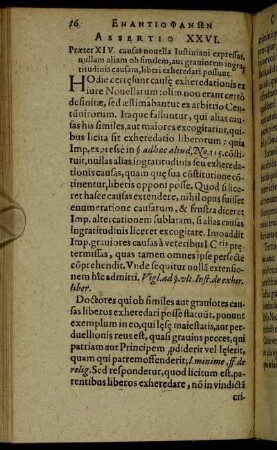 56 ΕΝΑΝΤΙΟΦΑΝΩΝ
ASSERTIO XXVI.
Præter XIV. causas novella Iustiniani expressas,
nullam aliam ob similem, aut graviorem ingra-
titudinis causam, liberi exheredari possunt.
HOdie certę sunt causę exheredationis ex
iure Novellarum: olim non erant certò
definitæ, sed æstimabantur ex arbitrio Cen-
tūvirorum. Itaque falluntur, qui alias causas
his similes, aut maiores excogitarint, qui-
bus licita sit exheredatio liberorum: quia
Imp. expresè in § ad hæc aliud, No. 115. cōsti-
tuit, nullas alias ingratitudinis seu exhereda-
tionis causas, quam quæ sua cōstitutione cō-
tinentur, liberis opponi posse. Quod si lice-
ret hasce causas extendere, nihil opus fuisset
enumeratione causarum, & frustra diceret
Imp. altercationem sublatam, si alias causas
ingratitudinis liceret excogitare. Imò addit
Imp. graviores causas à veteribus I Ctis prę-
termissas, quas tamen omnes ipse perfectè
cōprehendit. Vnde sequitur nullā extensio-
nem hîc admitti. Vigl. ad §. vlt. Inst. de exher.
liber.
Doctores qui ob similes aut graviores cau-
sas liberos exheredari posse statuūt, ponunt
exemplum in eo, qui lęsę maiestatis, aut per-
duellionis reus est, quasi gravius peccet, qui
patriam aut Principem, ꝓdiderit vel lęserit,
quam qui patrem offenderit; l. minimè, ff. de
relig. Sed respondetur, quod licitum est, pa-
rentibus liberos exheredare, nō in vindictā
cri-